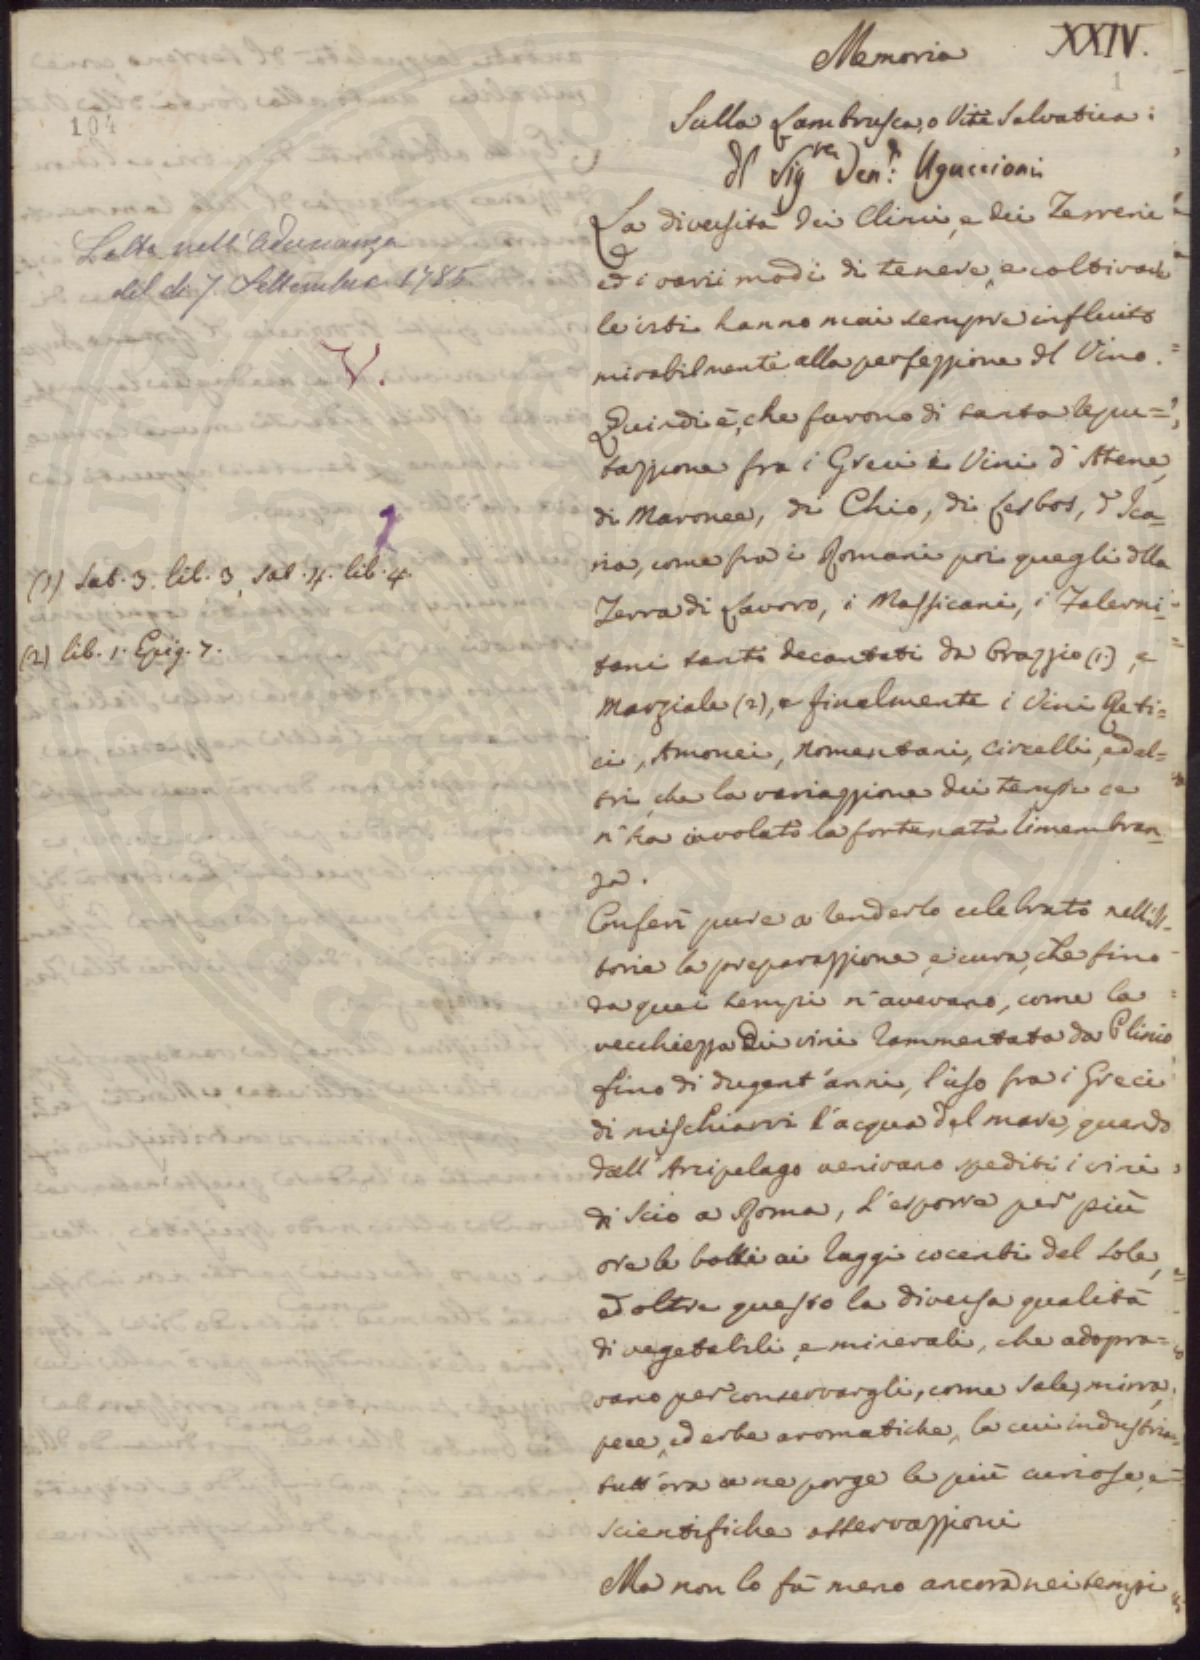 XXIV.
Memoria
1
104
Sulla Lambrusca, o Vite Salvatica:
Dl Sig.re Sen.re Uguccioni
Letta nell'Adunanza
del dì 7. Settembre 1785
V.
La diversità dei Climi, e dei Terreni
ed i varii modi di tenere, e coltivare
le viti hanno mai sempre influito
mirabilmente alla perfezzione dl Vino.
Quindi è, che furono di tanta repu=
tazzione fra i Greci i Vini d'Atene,
di Maronea, di Chio, di Lesbos, d'Ica=
ria, come fra i Romani poi quegli dlla
Terra di Lavoro, i Massicani, i Falerni=
tani tanto decantati da Orazzio (1.), e
Marziale (2), e finalmente i Vini Reti=
ci, Amonei, Nomentani, Circelli, ed al=
tri, che la variazzione dei tempi ce
n'ha involato la fortunata rimembran=
za.
(1) Sat. 3. lib. 3, Sat. 4. lib. 4.
(2) lib. 1. Epig. 7.
Conferì pure a renderlo celebrato nell'Is=
torie la preparazzione, e cura, che fino
da quei tempi n'avevano, come la
vecchiezza dei vini rammentata da Plinio
fino di dugent'anni, l'uso fra i Greci
di mischiarvi l'acqua del mare, quando
dall'Arcipelago venivano spediti i vini
di Scio a Roma, l'esporre per più
ore le botti ai raggi cocenti del sole,
ed oltre questo la diversa qualità
di vegetabili, e minerali, che adopra=
vano per conservargli, come sale, mirra,
pece, ed erbe aromatiche, la cui industria
tutt'ora ce ne porge le più curiose, e
scientifiche osservazzioni
Ma non lo fà meno ancora nei tempi